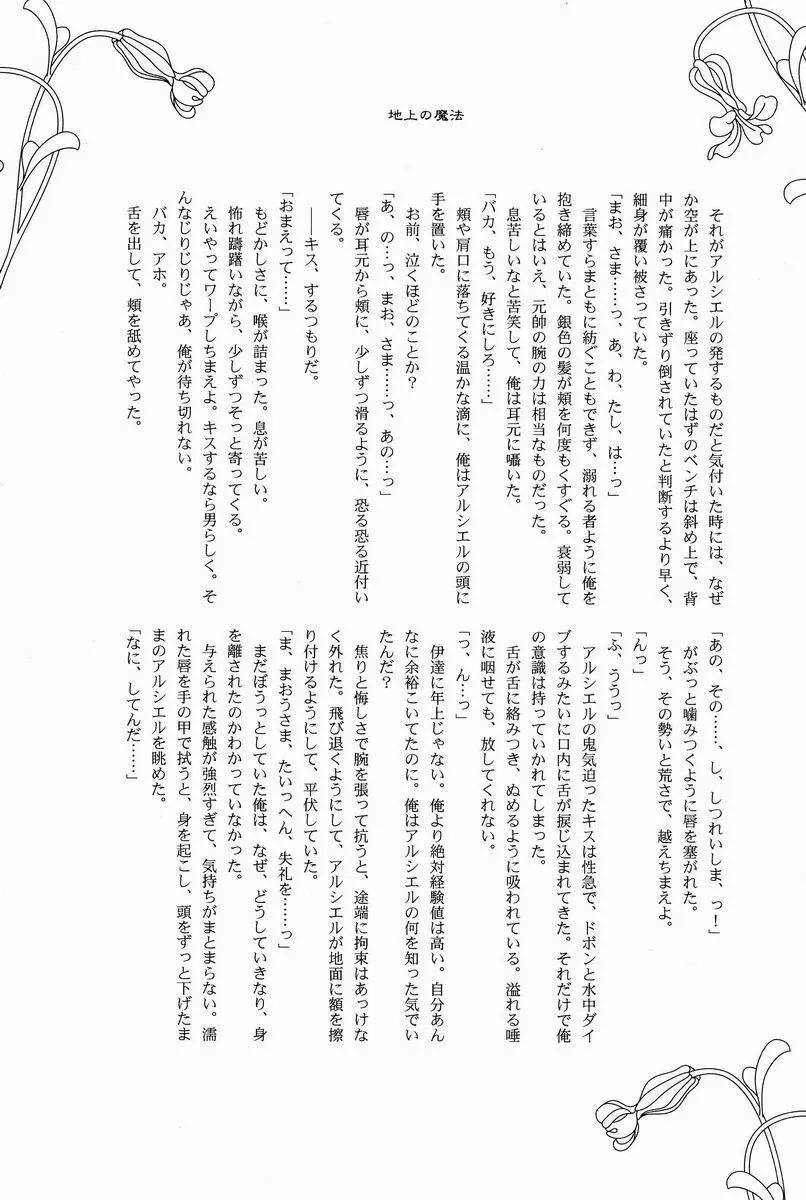 地上の魔法
　それがアルシエルの発するものだと気付いた時には、なぜ
か空が上にあった。座っていたはずのベンチは斜め上で、背
中が痛かった。引きずり倒されていたと判断するより早く、
細身が覆い被さっていた。
「まお、さま……っ、あ、わ、たし、は…っ」
　言葉すらまともに紡ぐこともできず、溺れる者ように俺を
抱き締めていた。銀色の髪が頬を何度もくすぐる。衰弱して
いるとはいえ、元帥の腕の力は相当なものだった。
　息苦しいなと苦笑して、俺は耳元に囁いた。
「バカ、もう、好きにしろ……」
　頬や肩口に落ちてくる温かな滴に、俺はアルシエルの頭に
手を置いた。
　お前、泣くほどのことか？
「あ、の…っ、まお、さま……っ、あの…っ」
　唇が耳元から頬に、少しずつ滑るように、恐る恐る近付い
てくる。
　――キス、するつもりだ。
「おまえって……」
　もどかしさに、喉が詰まった。息が苦しい。
　怖れ躊躇いながら、少しずつそっと寄ってくる。
　えいやってワープしちまえよ。キスするなら男らしく。そ
んなじりじりじゃあ、俺が待ち切れない。
　バカ、アホ。
　舌を出して、頬を舐めてやった。
「あの、その……、し、しつれいしま、っ！」
　がぶっと噛みつくように唇を塞がれた。
　そう、その勢いと荒さで、越えちまえよ。
「んっ」
「ふ、ううっ」
　アルシエルの鬼気迫ったキスは性急で、ドボンと水中ダイ
ブするみたいに口内に舌が捩じ込まれてきた。それだけで俺
の意識は持っていかれてしまった。
　舌が舌に絡みつき、ぬめるように吸われている。溢れる唾
液に咽せても、放してくれない。
「っ、ん…っ」
　伊達に年上じゃない。俺より絶対経験値は高い。自分あん
なに余裕こいてたのに。俺はアルシエルの何を知った気でい
たんだ？
　焦りと悔しさで腕を張って抗うと、途端に拘束はあっけな
く外れた。飛び退くようにして、アルシエルが地面に額を擦
り付けるようにして、平伏していた。
「ま、まおうさま、たいっへん、失礼を……っ」
　まだぼうっとしていた俺は、なぜ、どうしていきなり、身
を離されたのかわかっていなかった。
　与えられた感触が強烈すぎて、気持ちがまとまらない。濡
れた唇を手の甲で拭うと、身を起こし、頭をずっと下げたま
まのアルシエルを眺めた。
「なに、してんだ……」